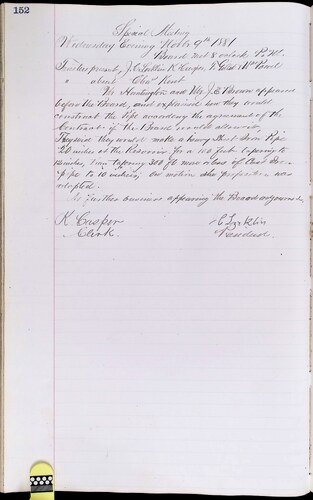 152
Special Meeting
Wednesday Evening Novbr 9th 1881
Board met 8 oclock P.M.
Trustees present, J.C. Lorklin K. Casper, F. Wm
" absent Chas
Mr Huntington and Mr J.E. Brown appeared
before the Board, and explained how they would
construct the Pipe according the agreement of the
Contract if the Board would allow it,
They said they would make a heavy Sheet Iron Pipe
20 inches at the Reservoir for a 100 feet tapering to
inches, then tapering 300 ft more
pipe to 10 inches, On motion the proposition was
adopted.
No further business appearing the Board adjourned.
K Casper
Clerk.
C Lorklin
President.